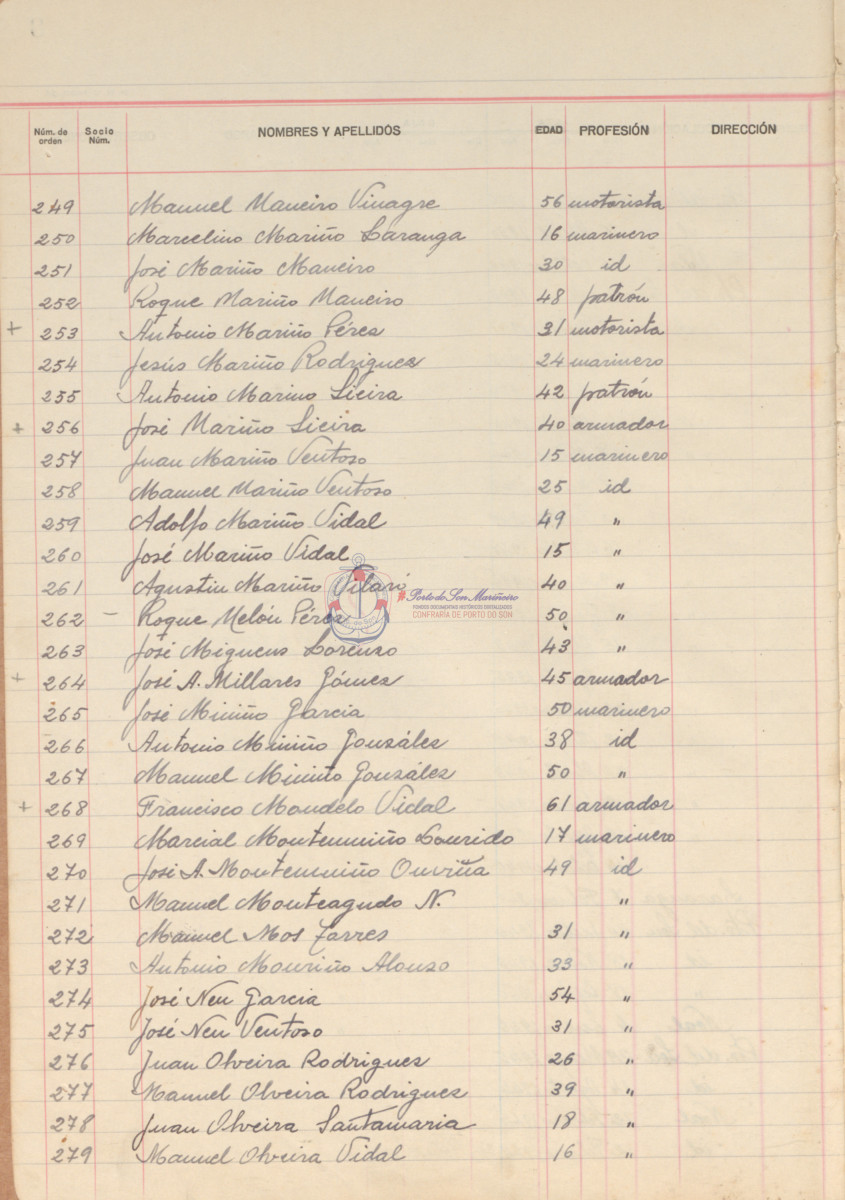 Núm. de orden Socio Núm. NOMBRES Y APELLIDOS EDAD PROFESIÓN DIRECCIÓN
249 Manuel Maneiro Vinagre 56 motorista
250 Marcelino Mariño Laranga 16 marinero
251 José Mariño Maneiro 30 id
252 Roque Mariño Maneiro 48 patrón
+ 253 Antonio Mariño Pérez 31 motorista
254 Jesús Mariño Rodriguez 24 marinero
255 Antonio Marino Sieira 42 patrón
+ 256 José Mariño Sieira 40 armador
257 Juan Mariño Ventoso 15 marinero
258 Manuel Mariño Ventoso 25 id
259 Adolfo Mariño Vidal 49 "
260 José Mariño Vidal 15 "
261 Agustin Mariño Vilaró 40 "
#Porto do Son Mariñeiro
FONDOS DOCUMENTAIS HISTÓRICOS DIXITALIZADOS
CONFRARÍA DE PORTO DO SON
262 - Roque Melón Pérez 50 "
263 José Migueus Lorenzo 43 "
+ 264 José A. Millares Gómez 45 armador
265 José Miniño Garcia 50 marinero
266 Antonio Miniño González 38 id
267 Manuel Miniño González 50 "
+ 268 Francisco Mondelo Vidal 61 armador
269 Marcial Montemuiño Lourido 17 marinero
270 José A. Montemuiño Ouviña 49 id
271 Manuel Monteagudo N. "
272 Manuel Mos Torres 31 "
273 Antonio Mouriño Alonso 33 "
274 José Neu Garcia 54 "
275 José Neu Ventoso 31 "
276 Juan Olveira Rodrigues 26 "
277 Manuel Olveira Rodriguez 39 "
278 Juan Olveira Santamaria 18 "
279 Manuel Olveira Vidal 16 "